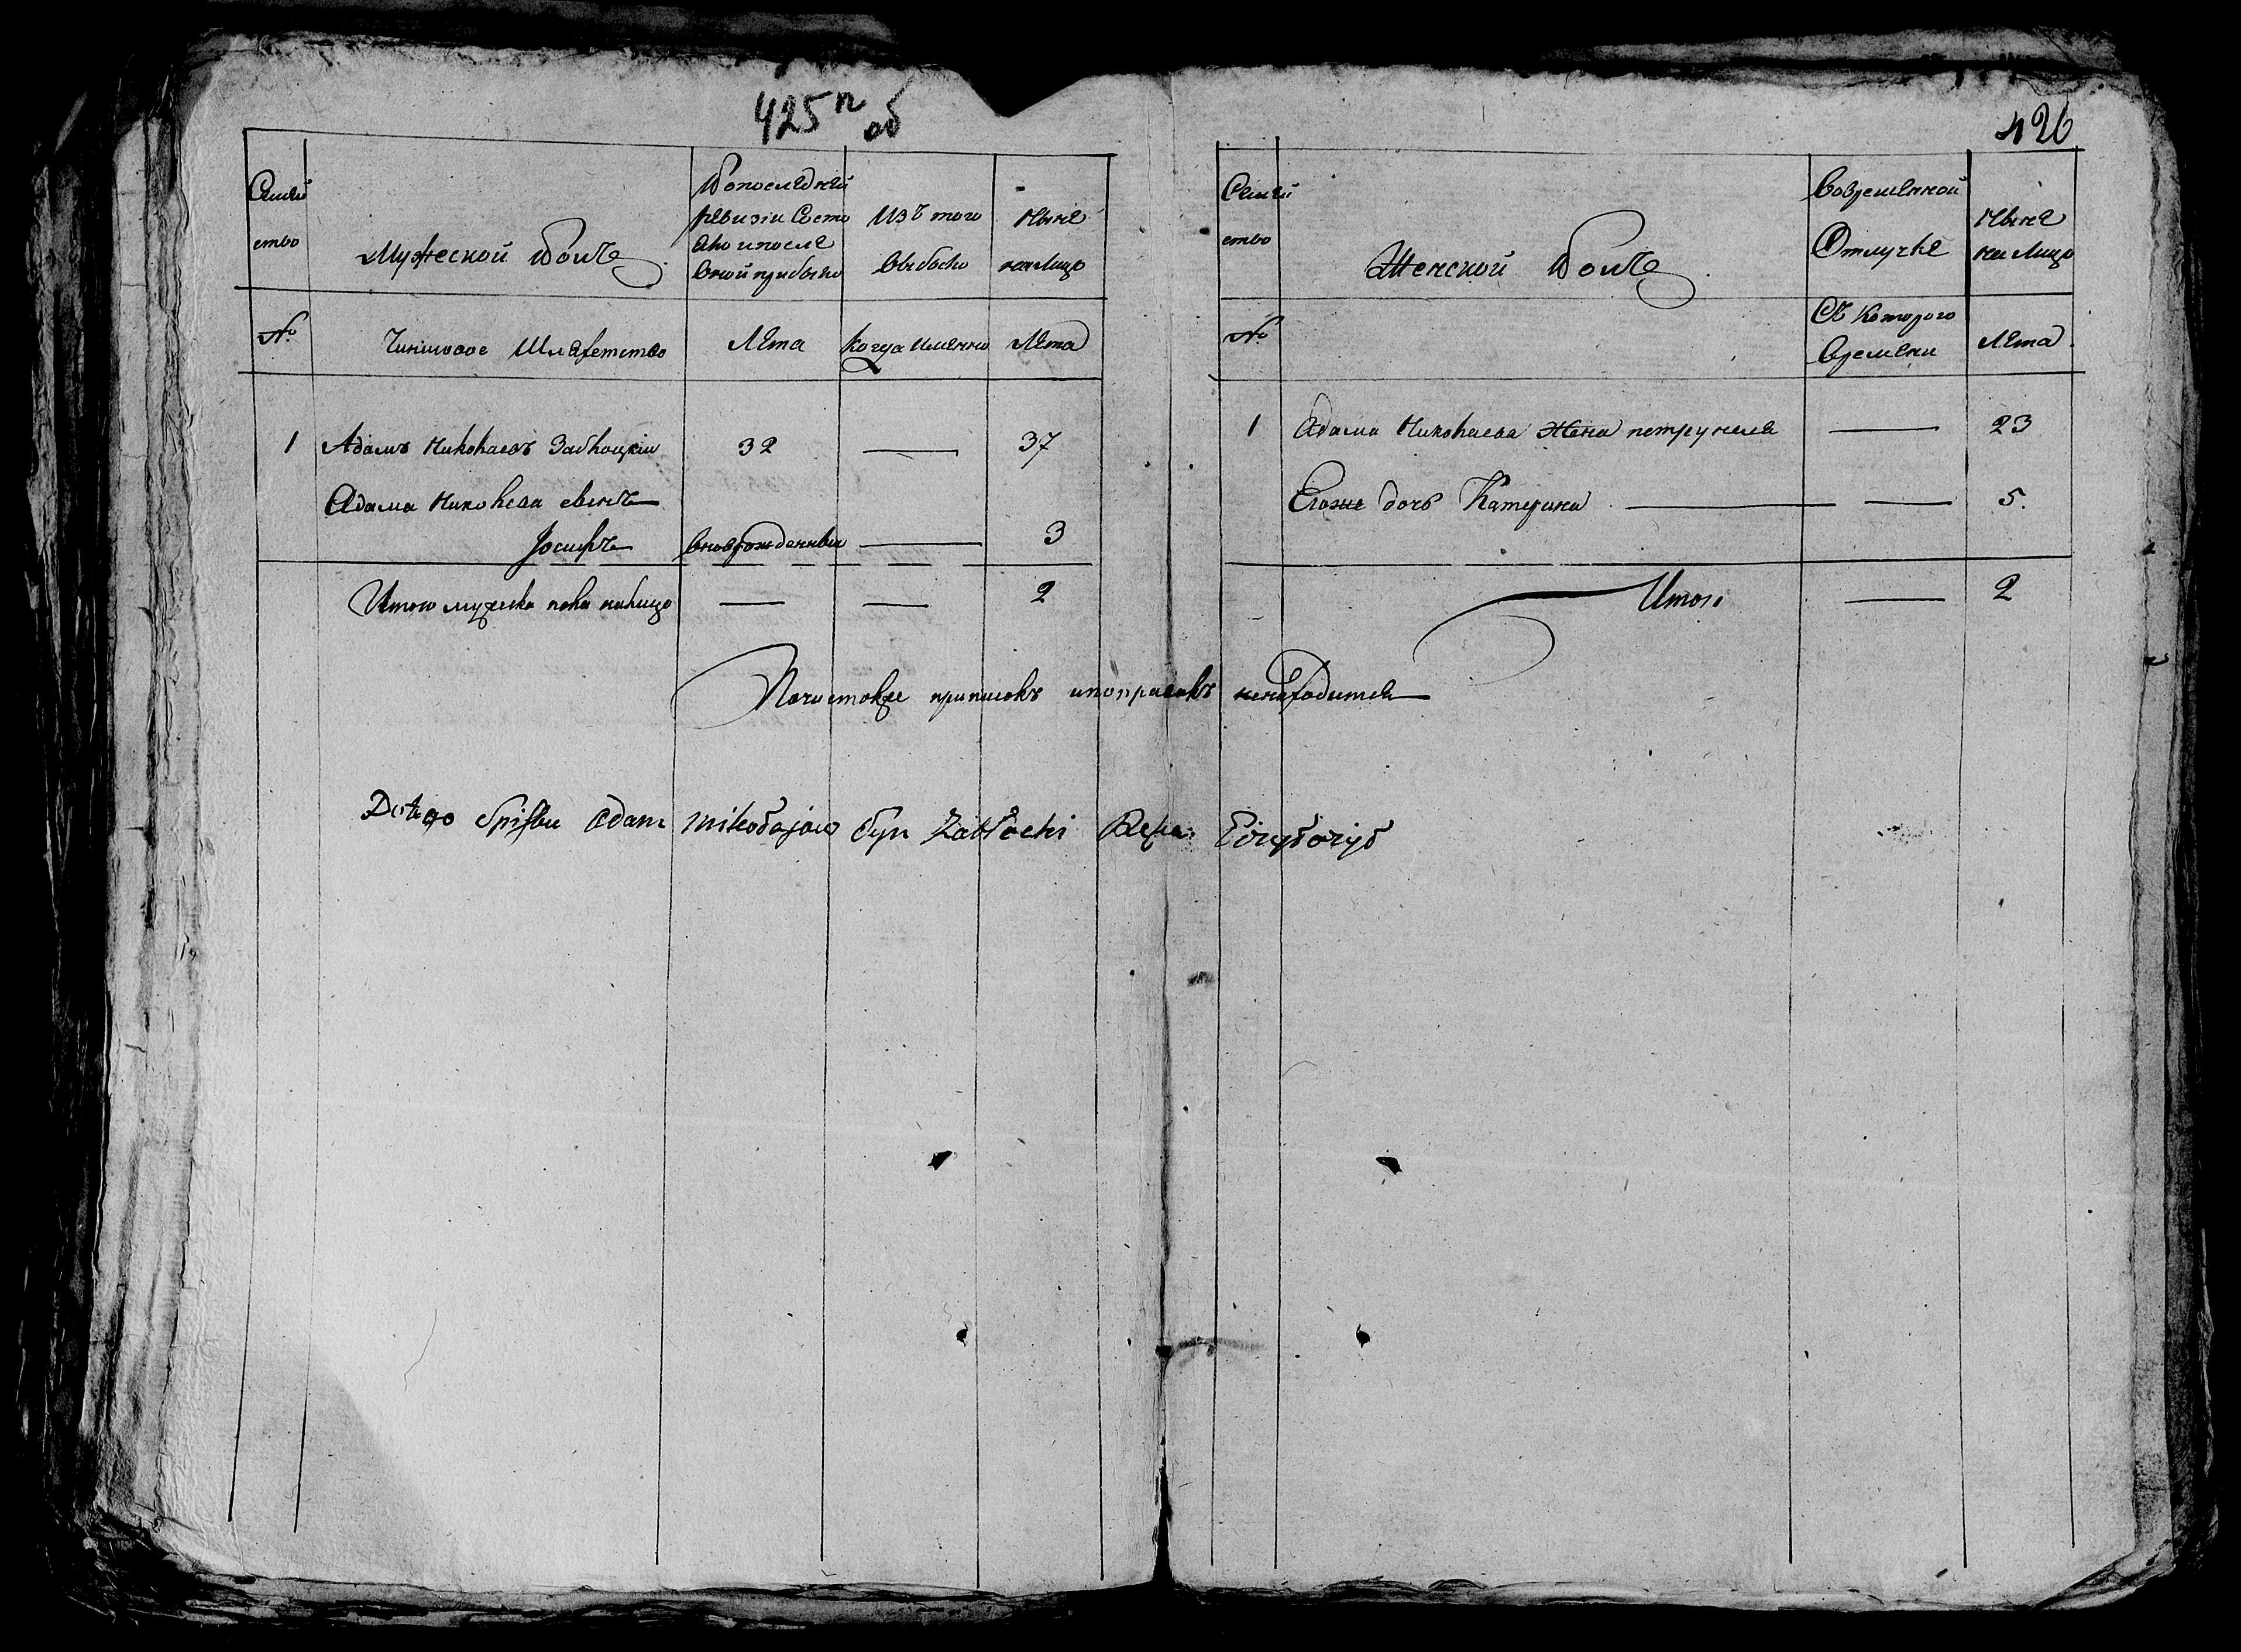 425 об
Семей
ство
Мужеской Полъ
Вопоследней
ревизiи Состо
яло ипосле
Оной прибыло
Изъ того
Выбыло
Ныне
на Лицо
№
Чиншовое Шляхетство
Лета
Когда Именно
Лета
1 Адамъ Николаевъ Заблоцкiи 32 — 37
Адама Николева сынъ
Josифъ вноврожденныи — 3
Итого мужска пола налицо — — 2
426
Семей
ство
Женской Полъ
Вовременной
Отлучке
Ныне
на Лицо
№
Съ Которого
Времени
Лета
1 Адама Николаева Жена петрунеля — 23
Егоже дочь Катерина — — 5.
Итого — 2
Почистокъе приписокъ ипоправокъ ненаходится
Do tego Spisku Adam Mikołajow Syn Zabłocki Ręką